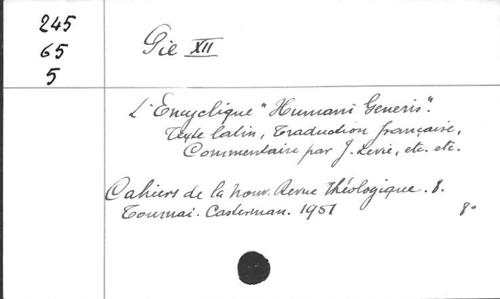 245
65
5
Pie XII
L'Encyclique "Humani Generis".
Texte latin, traduction française,
Commentaire par J. Levie, etc. etc.
Cahiers de la nouv. Revue théologique. 8.
Tournai. Casterman. 1951
8°